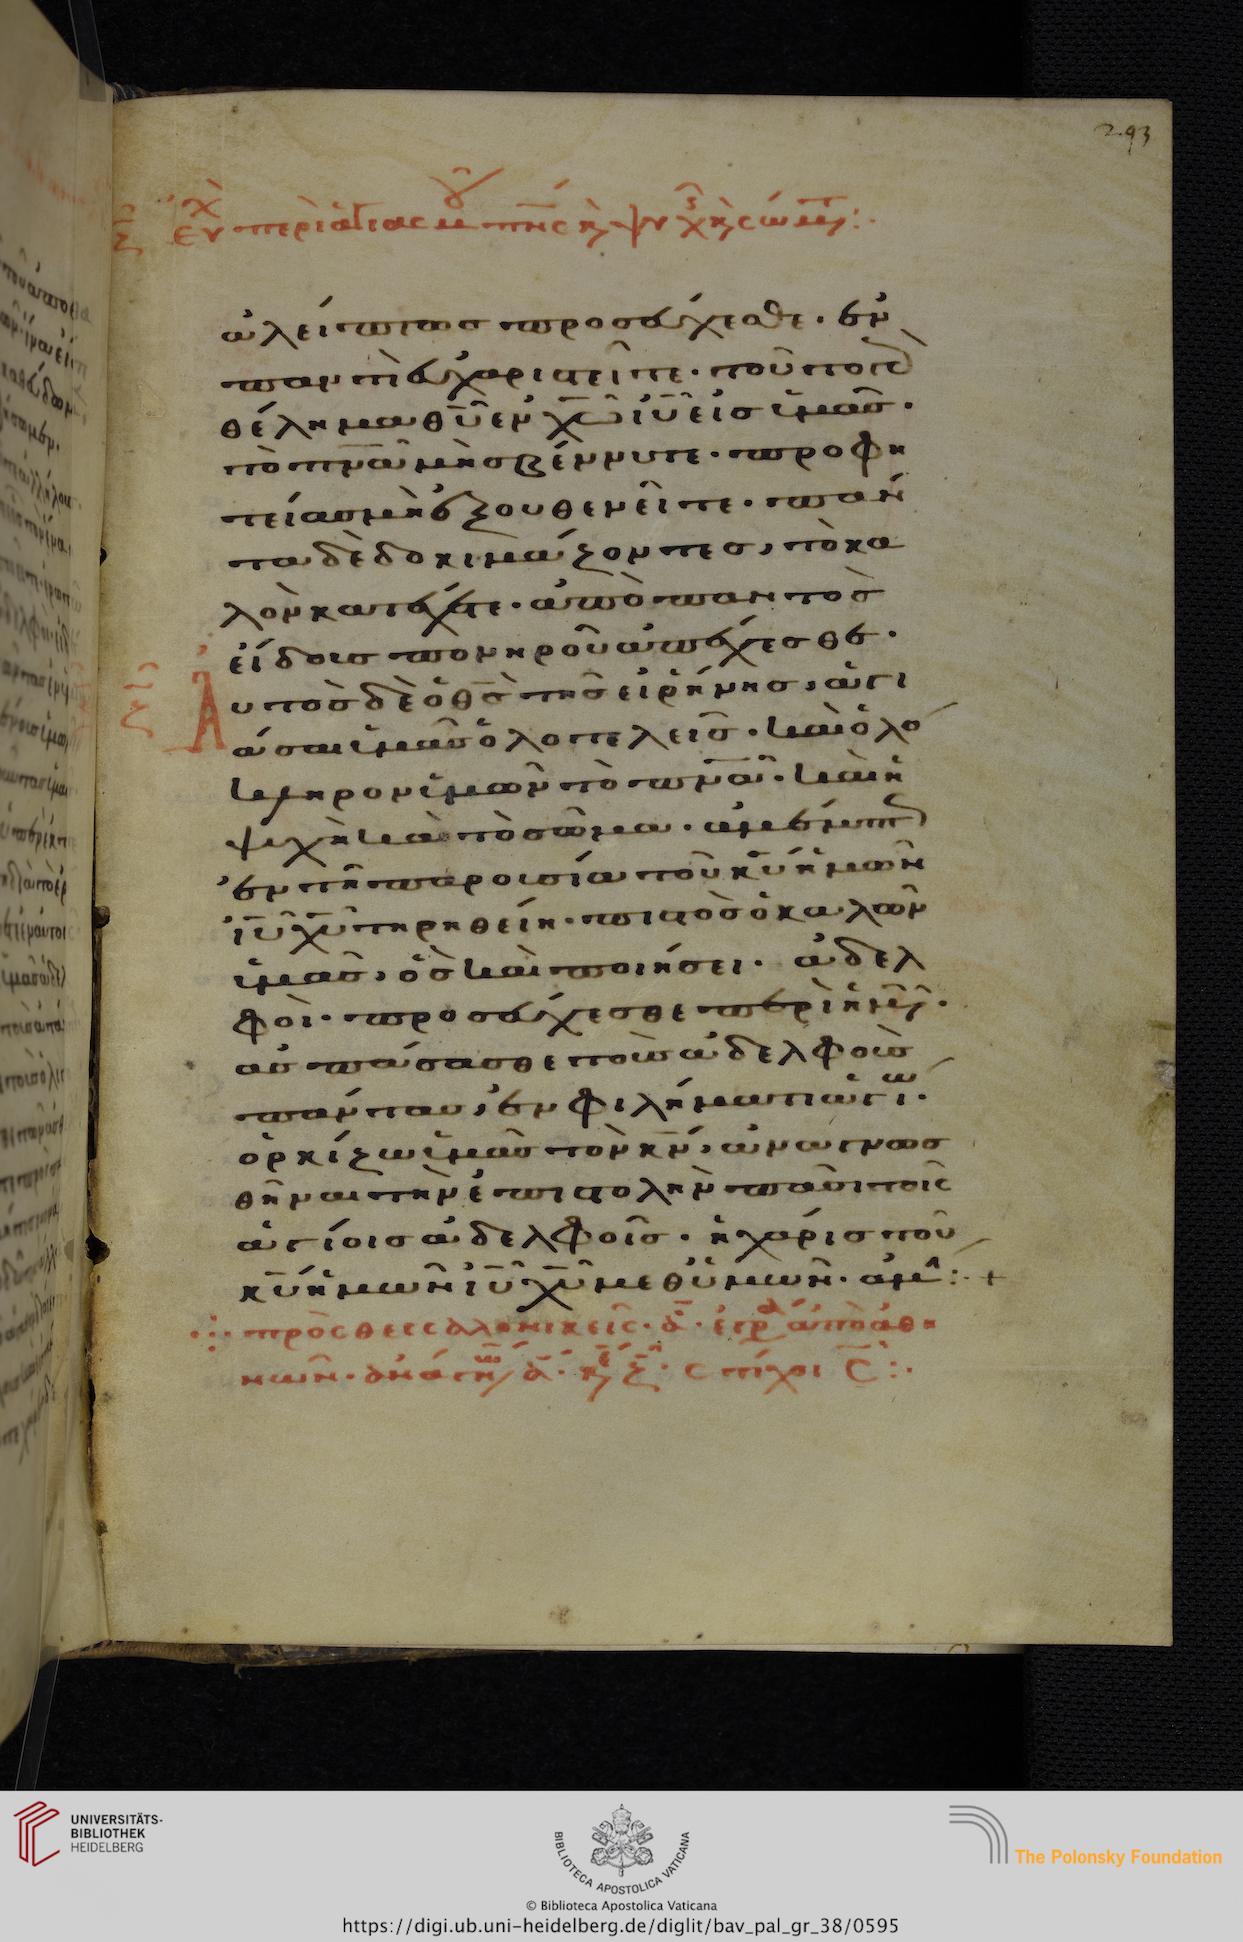 293
εὐχὴ περὶ ἁγιασμοῦ πν̅ς κ(αὶ) ψυχῆς κ(αὶ) σώμ(α)τ(ος):·
ἀλείπτως προσεύχεσθε. ἐν
παντὶ εὐχαριστεῖτε. τοῦτο γὰρ
θέλημα θυ̅ ἐν χω̅ ιυ̅ εἰς ὑμᾶς.
τὸ πνα̅ μὴ σβέννυτε. προφη
τείας μὴ ἐξουθενεῖτε. πάν
τα δὲ δοκιμάζοντες, τὸ κα
λὸν κατέχετε. ἀπὸ παντὸς
εἴδους πονηροῦ ἀπέχεσθε.
Αὐτὸς δὲ ὁ θς̅ τῆς εἰρήνης, ἁγι
άσαι ὑμᾶς ὁλοτελεῖς. καὶ ὁλό
κληρον ὑμῶν τὸ πνα̅. καὶ ἡ
ψυχὴ καὶ τὸ σῶμα. ἀμέμπτ
ἐν τῆ παρουσία τοῦ κυ̅ ἡμῶν
ιυ̅ χυ̅ τηρηθείη. πιστὸς ὁ καλῶν
ὑμᾶς, ὃς καὶ ποιήσει. ἀδελ
φοὶ. προσεύχεσθε περὶ ἡμ.
ἀσπάσασθε τοὺς ἀδελφοὺς
πάντας, ἐν φιλήματι ἁγίω.
ὁρκίζω ὑμᾶς τὸν κν̅, ἀναγνωσ
θῆναι τὴν ἐπιστολὴν πᾶσι τοῖς
ἁγίοις ἀδελφοῖς. ἡ χάρις τοῦ
κυ̅ ἡμῶν ιυ̅ χυ̅ μεθ ὑμῶν. ἀμ:· +
πρὸς θεσσαλονικεῖς. α̅. ἐγρ ἀπὸ ἀθη
νῶν.
στίχοι
UNIVERSITÄTS-
BIBLIOTHEK
HEIDELBERG
BIBLIOTECA APOSTOLICA VATICANA
The Polonsky Foundation
© Biblioteca Apostolica Vaticana
https://digi.ub.uni-heidelberg.de/diglit/bav_pal_gr_38/0595